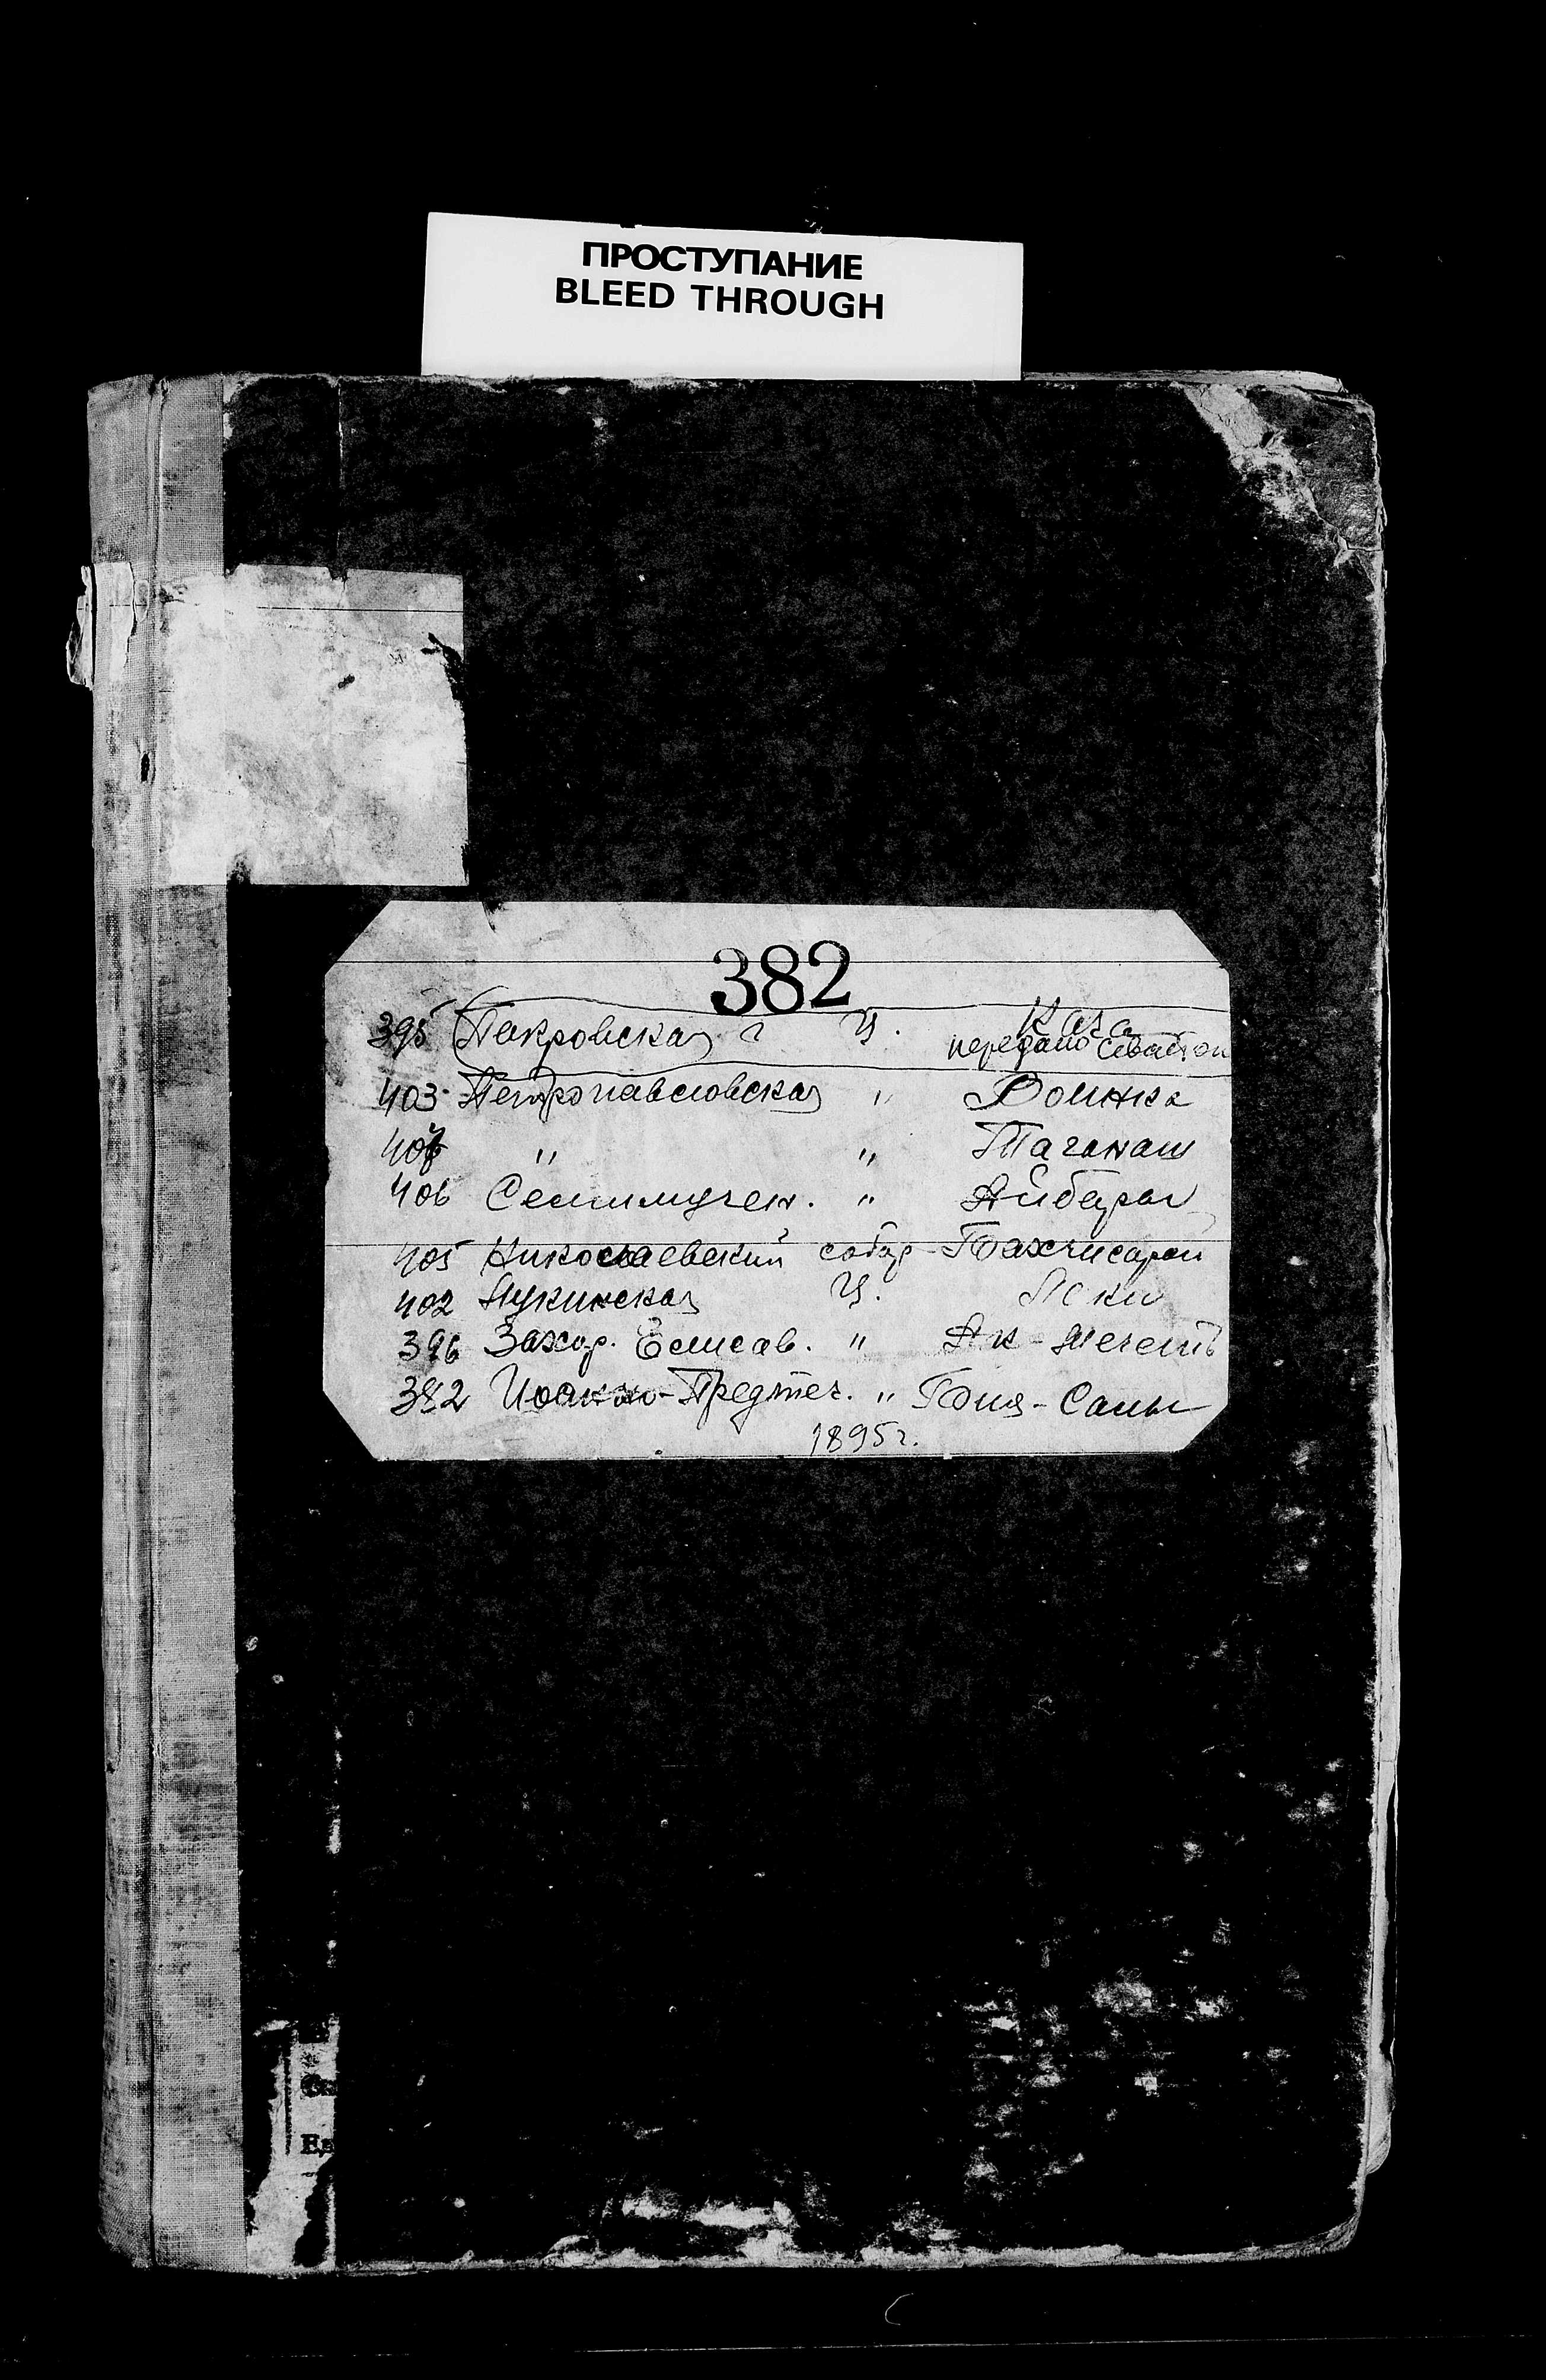 ПРОСТУПАНИЕ
BLEED THROUGH
382
395 Покровская ц. Кача
передано Севастоп
403 Петропавловская " Воинка
407 " " Таганаш
406 Семимучен. " Айбары
405 Николаевский собор Бахчисарай
402 Лукинская ц. Лски
396 Захар. Елисав. " Ак-Мечеть
382 Иоанно-Предтеч. " Бия-Салы
1895 г.